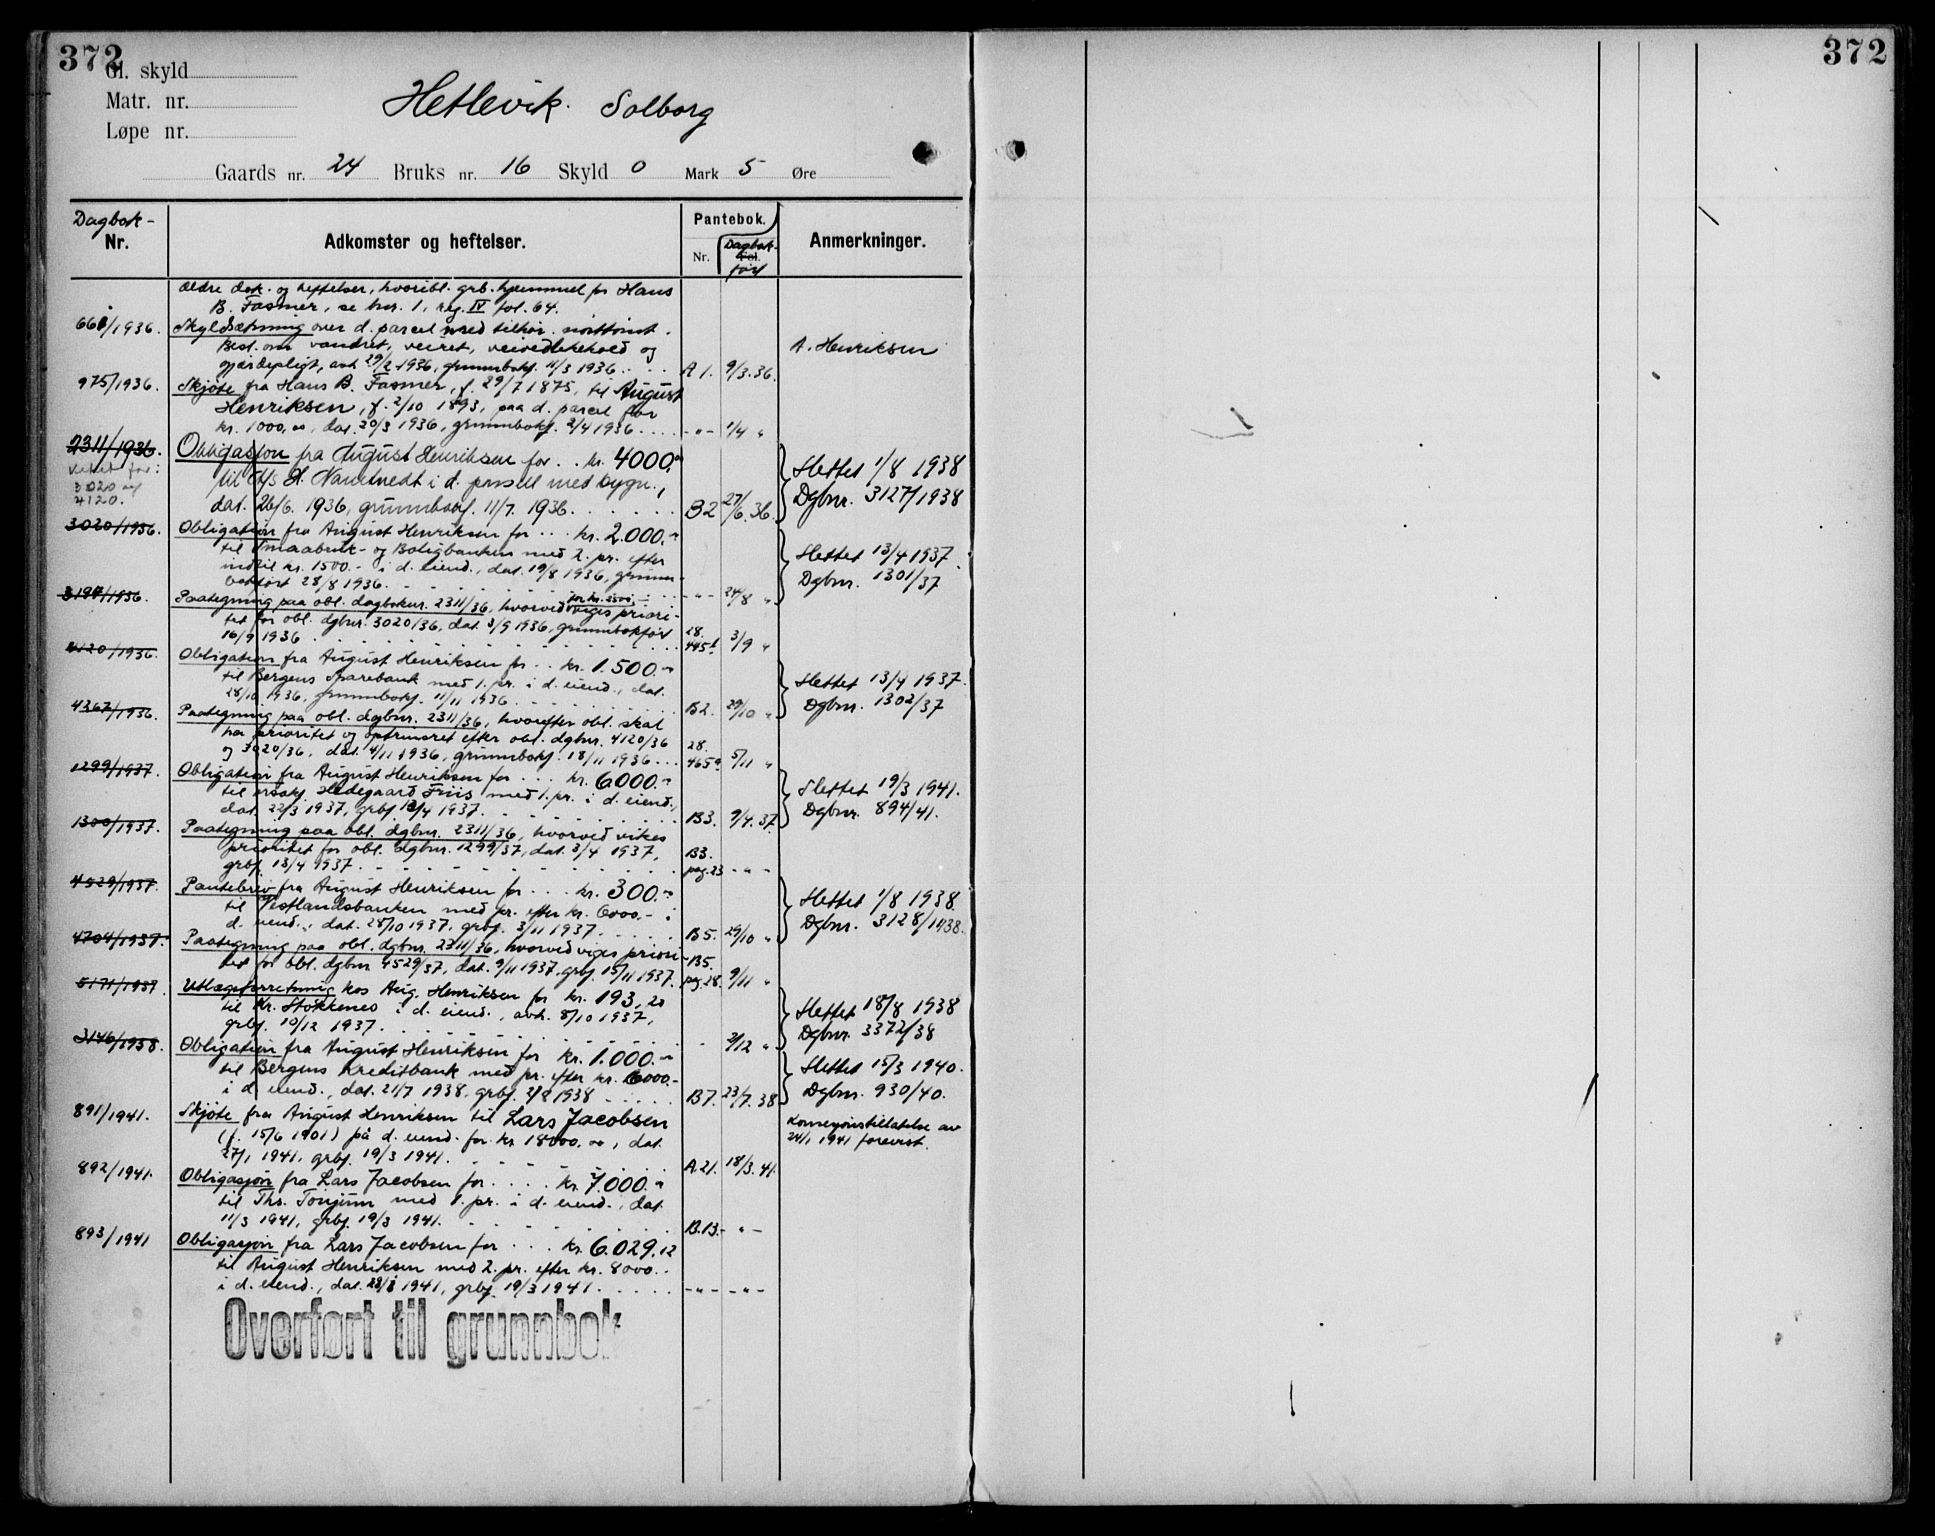 372
372
Gl. skyld
Matr. nr.
Løpe nr.
Hetlevik. Solborg
Gaards nr. 24 Bruks nr. 16 Skyld 0 Mark 5 Øre
Dagbok-
Nr.
Adkomster og heftelser.
Pantebok.
Nr.
Dagbok-
Fol.
ført
Anmerkninger.
Ældre dok. og heftelser, hvoribl. grb. hjemmel for Hans
B. Fasmer, se bnr. 1, reg. IV fol. 64.
661/1936. Skyldsætning over d. parcel med tilhør.
Best. om vandret, veiret, veivedlikehold og
gjærdepligt, avh. 29/2 1936, grunnbokf. 11/3 1936. A 1. 9/3.36.
A. Henriksen
975/1936. Skjøte fra Hans B. Fasmer, f. 29/7 1875, til August
Henriksen, f. 2/10 1893, paa d. parcel for
kr. 1000,00, dat. 20/3 1936, grunnbokf. 2/4 1936. - " - 1/4 "
2311/1936. Obligasjon fra August Henriksen for .. kr. 4000.00
Veket for:
3020 og
4120.
til A/S H. Namtvedt i d. parsell med bygn.,
dat. 26/6. 1936, grunnbokf. 11/7. 1936. B2 27/6.36.
Slettet 1/8 1938
Dgbnr. 3127/1938
3020/1936. Obligation fra August Henriksen for ... kr. 2.000.00
til Smaabruk- og Boligbanken med 2. pr. efter
indtil kr. 1500.- i d. eiend., dat. 19/8 1936, grunn-
bokført 28/8 1936. - " - 24/8 "
Slettet 13/4 1937.
Dgbnr. 1301/37
3197/1936. Paategning paa obl. dagboknr. 2311/36, hvorved viges priori-
for kr. 3500,-
tet for obl. dgbnr. 3020/36, dat. 3/9 1936, grunnbokført
16/9 1936 28. 445b 3/9 "
4120/1936. Obligation fra August Henriksen for .. kr. 1.500.00
til Bergens Sparebank med 1. pr. i d. eiend., dat.
28/10 1936, grunnbokf. 11/11 1936 B2. 29/10 "
Slettet 13/4 1937.
Dgbnr. 1302/37
4267/1936. Paategning paa obl. dgbnr. 2311/36, hvorefter obl. skal
ha prioritet og optrinsret efter obl. dgbnr. 4120/36
og 3020/36, dat. 4/11 1936, grunnbokf. 18/11 1936 ... 28. 465a 5/11 "
1299/1937. Obligation fra August Henriksen for ... kr. 6000.00
til Hedegaard Friis med 1. pr. i d. eiend.,
dat. 22/3 1937, grbf. 13/4 1937. B3. 9/4.37.
Slettet 19/3 1941.
Dgbnr. 894/41.
1300/1937. Paategning paa obl. dgbnr. 2311/36, hvorved vikes
prioritet for obl. dgbnr. 1299/37, dat. 3/4 1937,
grbf. 13/4 1937. B3. pag. 23 - " -
4529/1937. Pantebrev fra August Henriksen for ... kr. 300.00
til Vestlandsbanken med pr. efter kr. 6000.- i
d. eiend., dat. 28/10 1937, grbf. 3/11 1937. B5. 29/10 "
Slettet 1/8 1938.
Dgbnr. 3128/1938.
4704/1937. Paategning paa obl. dgbnr. 2311/36, hvorved viges priori-
tet for obl. dgbnr 4529/37, dat. 9/11 1937, grbf. 15/11 1937. B5. pag. 28. 9/11 "
5171/1937. Utlægsforretning hos Aug. Henriksen for kr. 193,20
til Kr. Stokkenes i d. eiend., avh. 8/10 1937,
grbf. 10/12 1937. - 3/12 "
Slettet 18/8 1938
Dgbnr. 3372/38
3146/1938. Obligation fra August Henriksen for kr. 1.000.00
til Bergens Kreditbank med pr. efter kr. 6000.-
i d. eiend., dat. 21/7 1938, grbf. 2/8 1938 B7. 23/7.38
Slettet 15/3 1940.
Dgbnr. 930/40.
891/1941. Skjøte fra August Henriksen til Lars Jacobsen
(f. 15/6 1901) på d. eiend. for kr 18000.00, dat.
27/1 1941, grbf. 19/3 1941. A.21. 18/3.41.
Konsesjonstillatelse av
24/1 1941 forevist.
892/1941. Obligasjon fra Lars Jacobsen for .... kr. 7.000.00
til Ths. Tonjum med 1. pr. i d. eiend., dat.
11/3 1941, grbf. 19/3 1941. B.13. - " -
893/1941 Obligasjon fra Lars Jacobsen for ... kr. 6.029.12
til August Henriksen med 2. pr. efter kr. 8000.-
i d. eiend., dat. 28/1 1941, grbf. 19/3 1941. - " - - " -
Overført til grunnbok